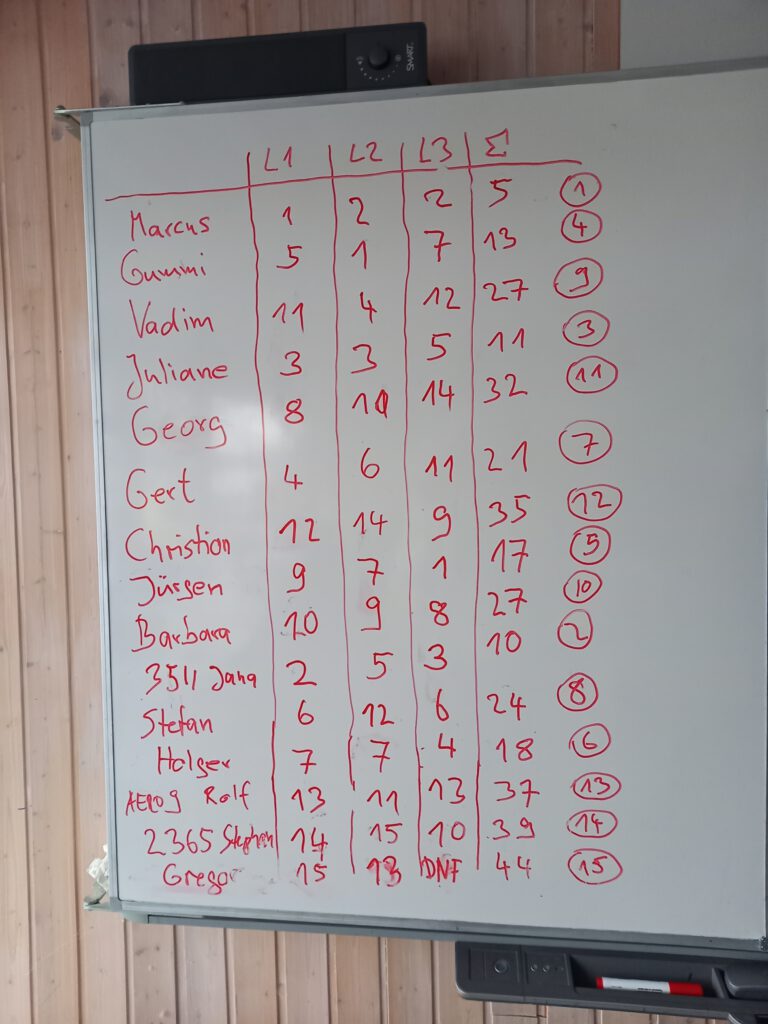 SMART
L1 L2 L3 Σ
Marcus 1 2 2 5 1
Gummi 5 1 7 13 4
Vadim 11 4 12 27 9
Juliane 3 3 5 11 3
Georg 8 10 14 32 11
Gert 4 6 11 21 7
Christian 12 14 9 35 12
Jürgen 9 7 1 17 5
Barbara 10 9 8 27 10
3511 Jana 2 5 3 10 2
Stefan 6 12 6 24 8
Holger 7 7 4 18 6
Rolf 13 11 13 37 13
2365 Stephan 14 15 10 39 14
Gregor 15 13 DNF 44 15